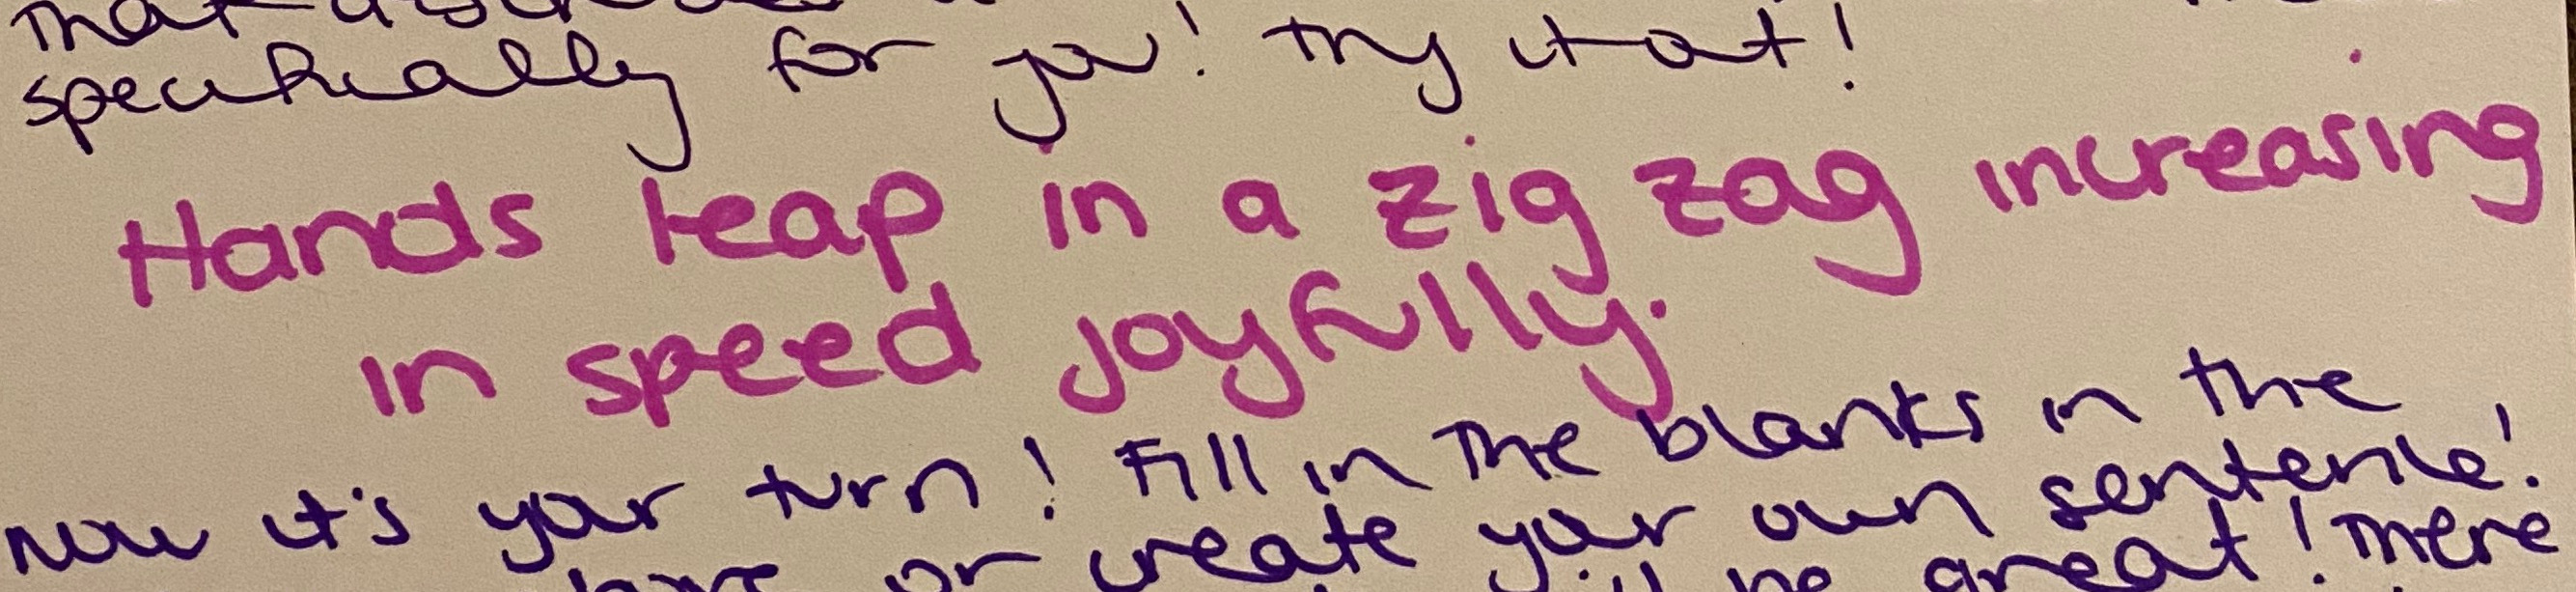 that
specifically for you! Try it out!
Hands leap in a zig zag increasing
in speed joyfully.
Now it's your turn! Fill in the blanks in the
or create your own sentence!
be great! There